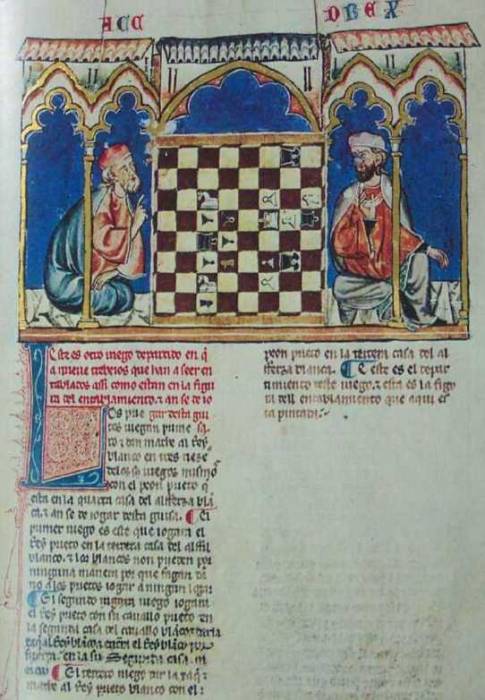 ACE DREX
Este es otro iuego departido en q̃
a nueue trebeios que han a seer en
tablados assi como estan en la figu
ra del entablamiento. & an se de io
Los prie gar desta gui
tos iuegan prime sa.
ro & dan mathe al Rey
blanco en tres
de los sus iuegos mismos
con el peon prieto q̃
esta en la quarta casa del alfferza blã
ca. & an se de iogar desta guisa. El
primer iuego es este que iogara el
Rey prieto en la tercera casa del alffil
blanco. & los blancos non pueden por
ninguna manera por que fagan da
no a los prietos iogar a ningun logar
El segundo iuego iogara
el Rey prieto con su cauallo prieto en
la segunda casa del cauallo blanco
el Rey blanco
en la su segunda casa
El tercero iuego dar la xaq̃. &
mathe al Rey prieto blanco con el
peon prieto en la tercera casa del al
fferza blanca. Este es el depar
timiento deste iuego. & esta es la figu
ra dell entablamiento que aqui es
ta pintada.